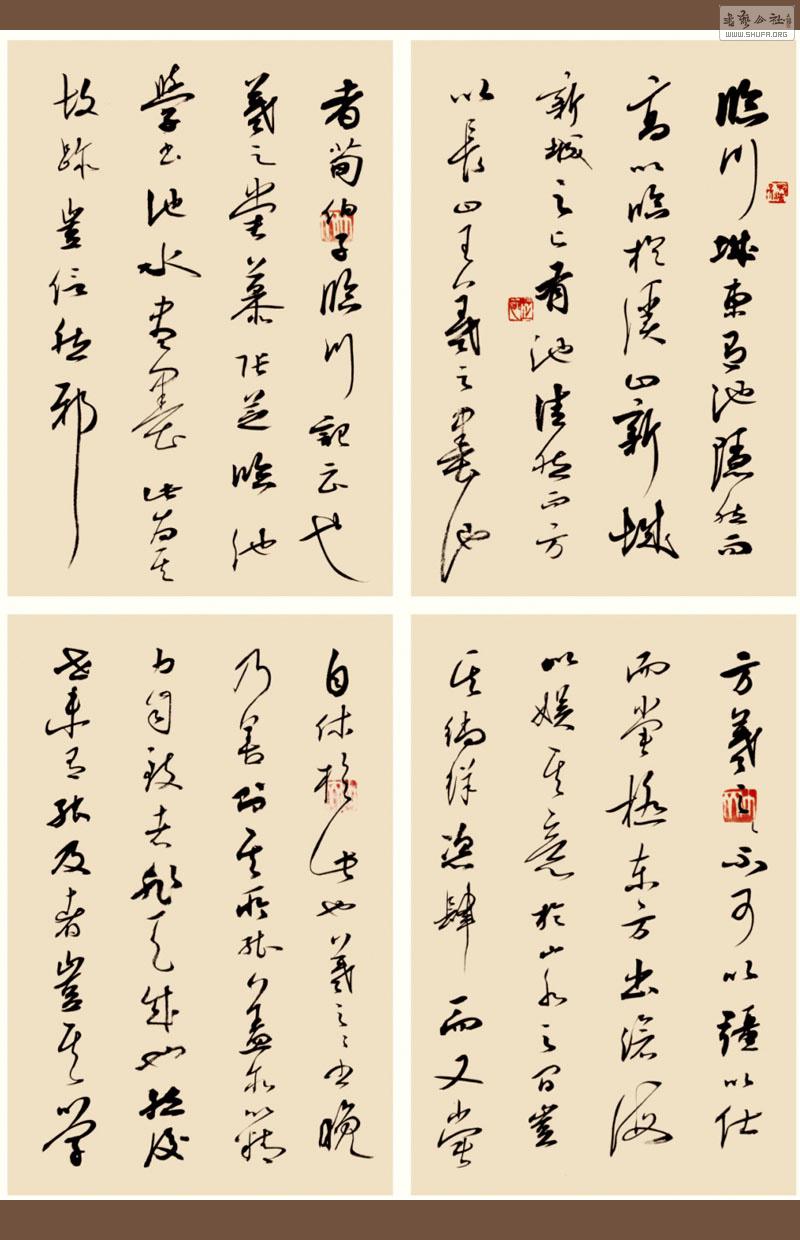 書藝公社
WWW.SHUFA.ORG
臨川城東有池隱然而
高以臨於溪曰新城
新城之上有池洼然而方
以長曰王羲之墨池
者荀伯子臨川記云也
羲之嘗慕張芝臨池
學書池水盡墨此為其
故跡豈信然邪
方羲之之不可以彊以仕
而嘗極東方出滄海
以娛其意於山水之間豈
其徜徉恣肆而又嘗
自休於此也羲之之書晚
乃善則其所能蓋亦以精
力自致者非天成也然後
世未有能及者豈其學